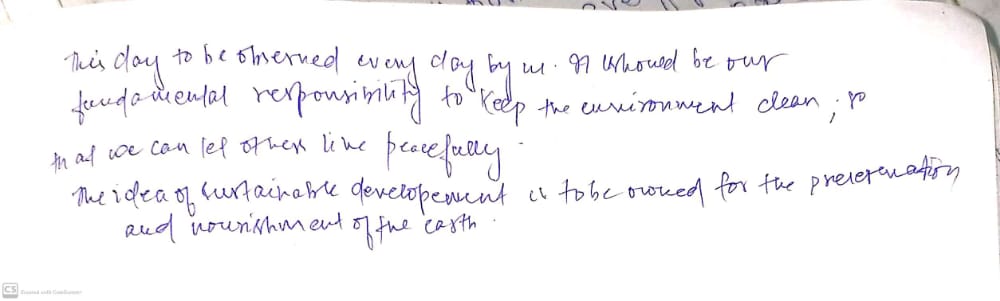 This day to be observed every day by us. It should be our
fundamental responsibility to keep the environment clean, so
that we can let others live peacefully.
The idea of sustainable developement is to be owned for the preservation
and nourishment of the earth.
CS Scanned with CamScanner